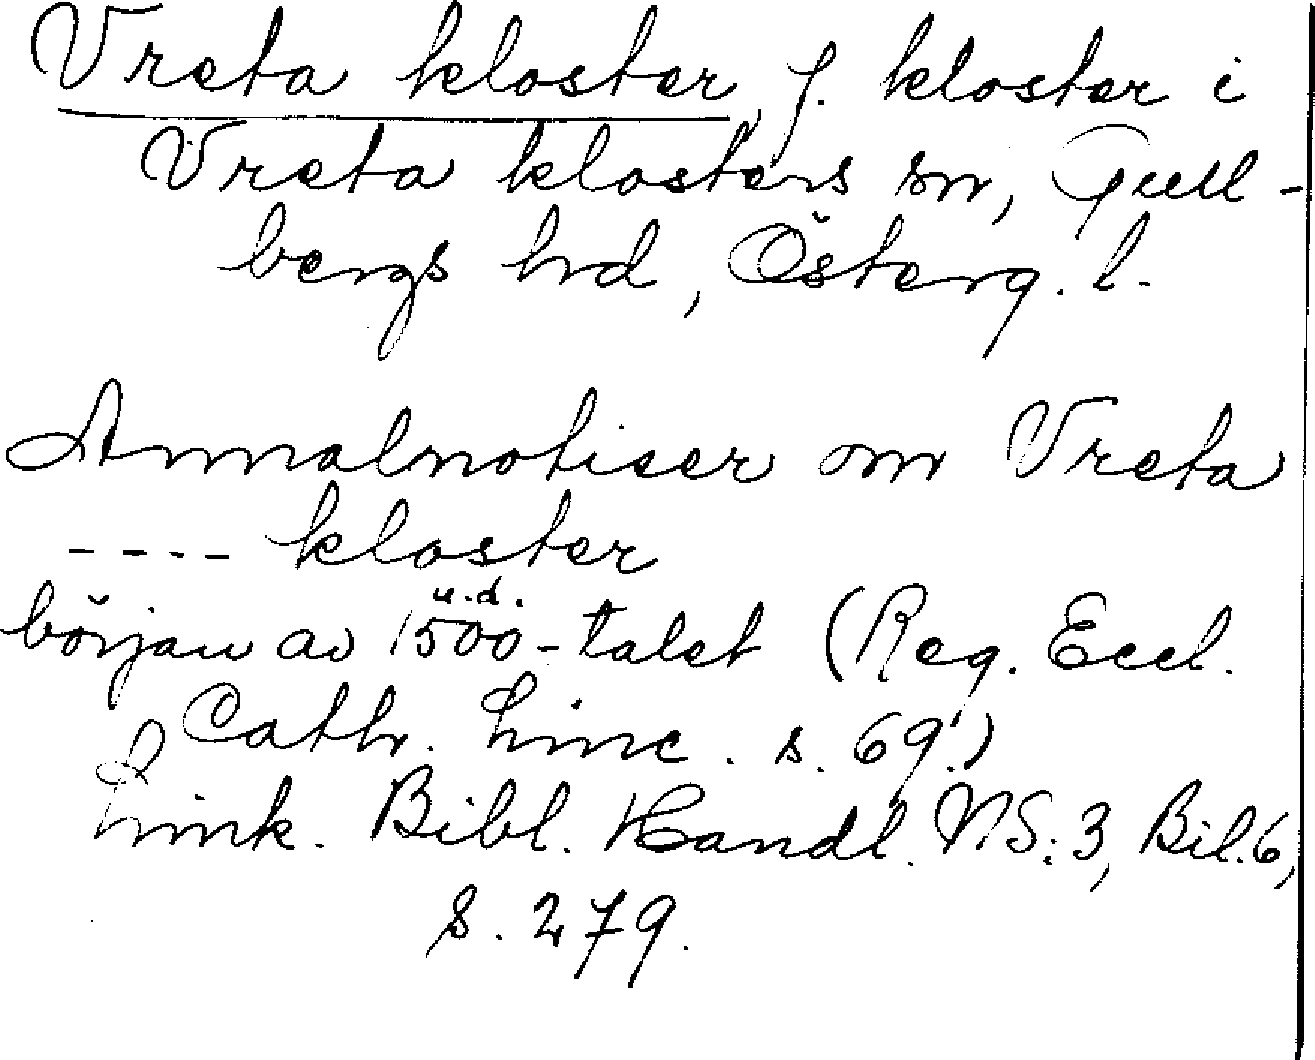 Vreta kloster, f. kloster i
Vreta klosters sn, Gull-
bergs hd, Österg. l.
Annalnotiser om Vreta
---- kloster
u.d.
början av 1500-talet (Reg. Eccl.
Cath. Linc. s. 69.)
Link. Bibl. Handl. NS:3, Bil.6,
S. 279.